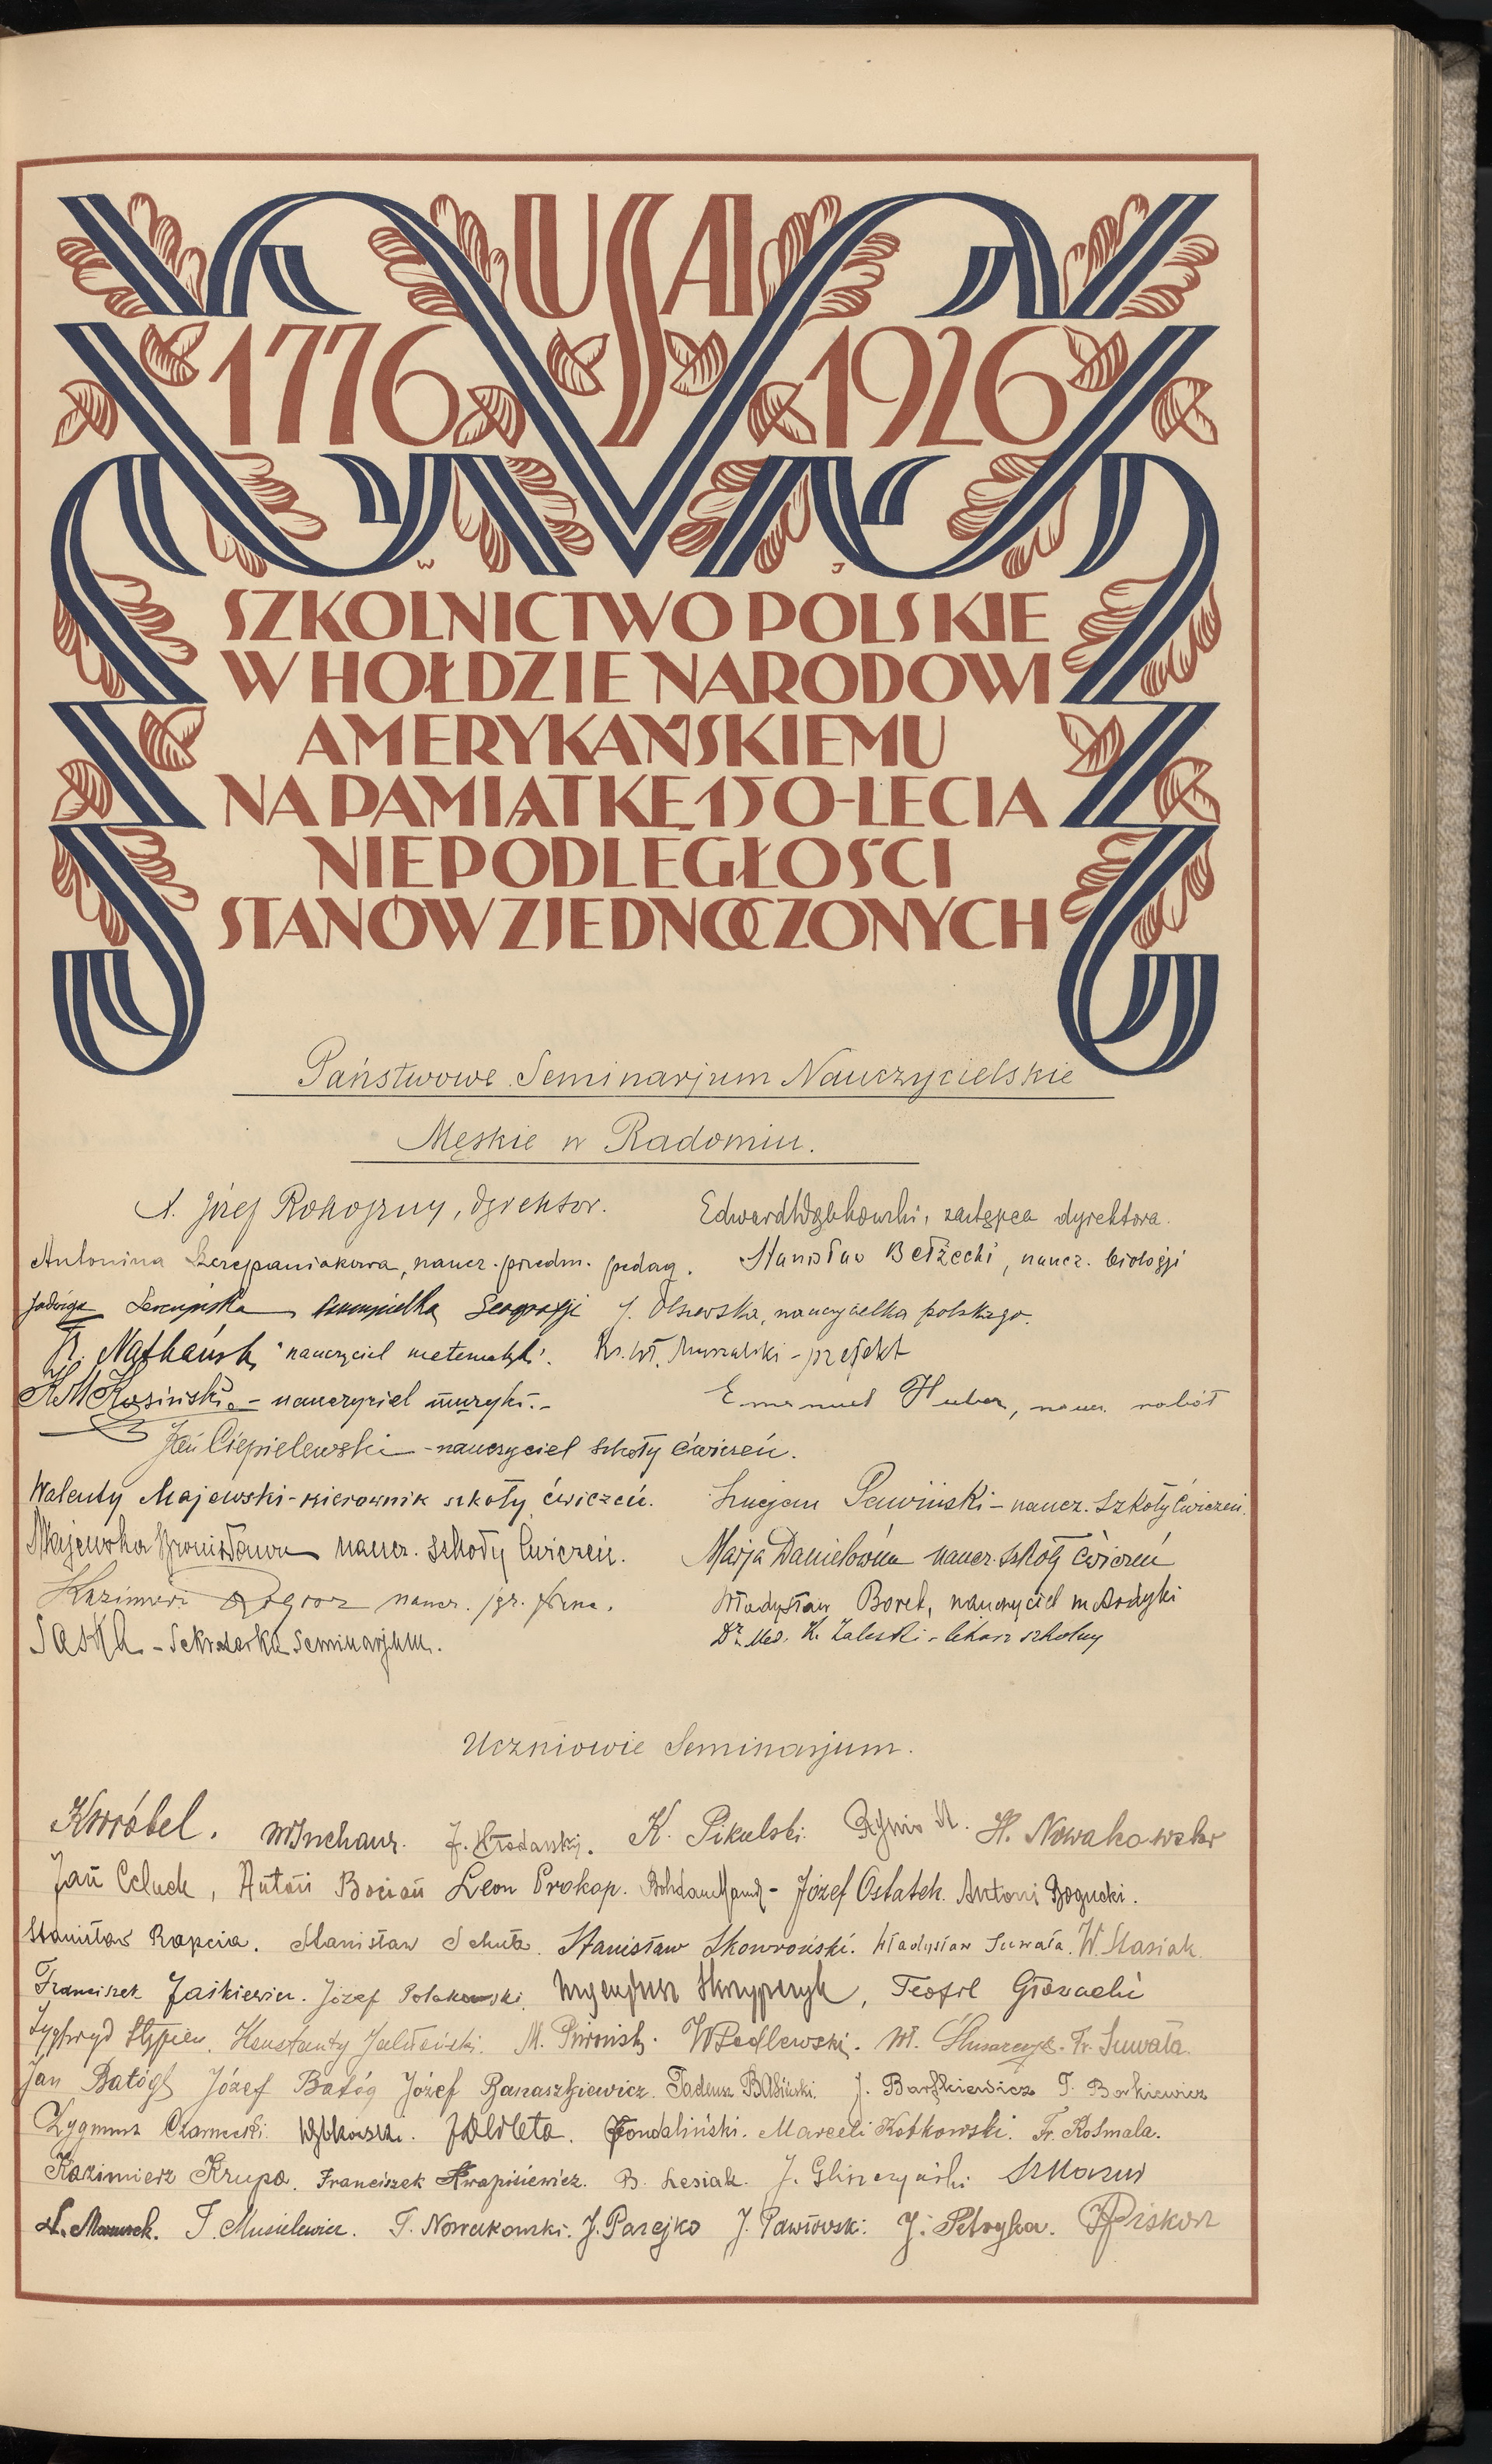 USA
1776 1926
W J
SZKOLNICTWO POLSKIE
W HOŁDZIE NARODOWI
AMERYKAŃSKIEMU
NA PAMIĄTKĘ 150-LECIA
NIEPODLEGŁOŚCI
STANÓW ZJEDNOCZONYCH
Państwowe Seminarjum Nauczycielskie
Męskie w Radomiu.
X. Józef Rokoszny, dyrektor. Edward Wąbkowski, zastępca dyrektora.
Antonina Szczepaniakowa, naucz. przedm. pedag. Stanisław Bełżecki, naucz. biologji
Jadwiga nauczycielka Geografji J. Olszewska, nauczycielka polskiego.
nauczyciel matematyki. Ks. Wł. Muszalski - prefekt
K. M. Kosiński. - nauczyciel muzyki. - Emanuel Huber, naucz. robót
Jan Ciepielewski - nauczyciel szkoły ćwiczeń.
Walenty Majewski - kierownik szkoły ćwiczeń. Lucjan Pawiński - naucz. Szkoły Ćwiczeń.
Majewska Bronisława naucz. szkoły ćwiczeń. Marja Danielówna naucz. szkoły ćwiczeń
Kazimierz naucz. Władysław Borek, nauczyciel metodyki
- Sekretarka Seminarjum. Dr. Med. K. Zaleski - lekarz szkolny
Uczniowie Seminarjum.
KWróbel. K. Pikulski. H. Nowakowski
Jan Celuch, Antoni Bocian Leon Prokop. Józef Ostatek. Antoni Bogucki.
Stanisław Rapcia. Stanisław Sekuła. Stanisław Skowroński. Władysław Suwała. W. Stasiak.
Franciszek Jaśkiewicz. Józef Polakowski. Eugenjusz Skrzypczyk, Teofil Głowacki
Zygfryd Stępień. Konstanty M. Piwoński. WPodlewski. Wł. Ślusarczyk. Fr. Suwała.
Jan Batóg Józef Batóg Józef Banaszkiewicz. Tadeusz Babiński. J. Bartkiewicz T. Borkiewicz
Zygmunt Czarnecki. Gondaliński. Marceli Kotkowski. Fr. Kosmala.
Kazimierz Krupa. Franciszek Kwapisiewicz. B. Lesiak. J. Gliszczyński SMazur
St. Mazurek. T. Musielewicz. T. Nowakowski. J. Parejko J. Pawłowski. J. Petryka. Piskorz